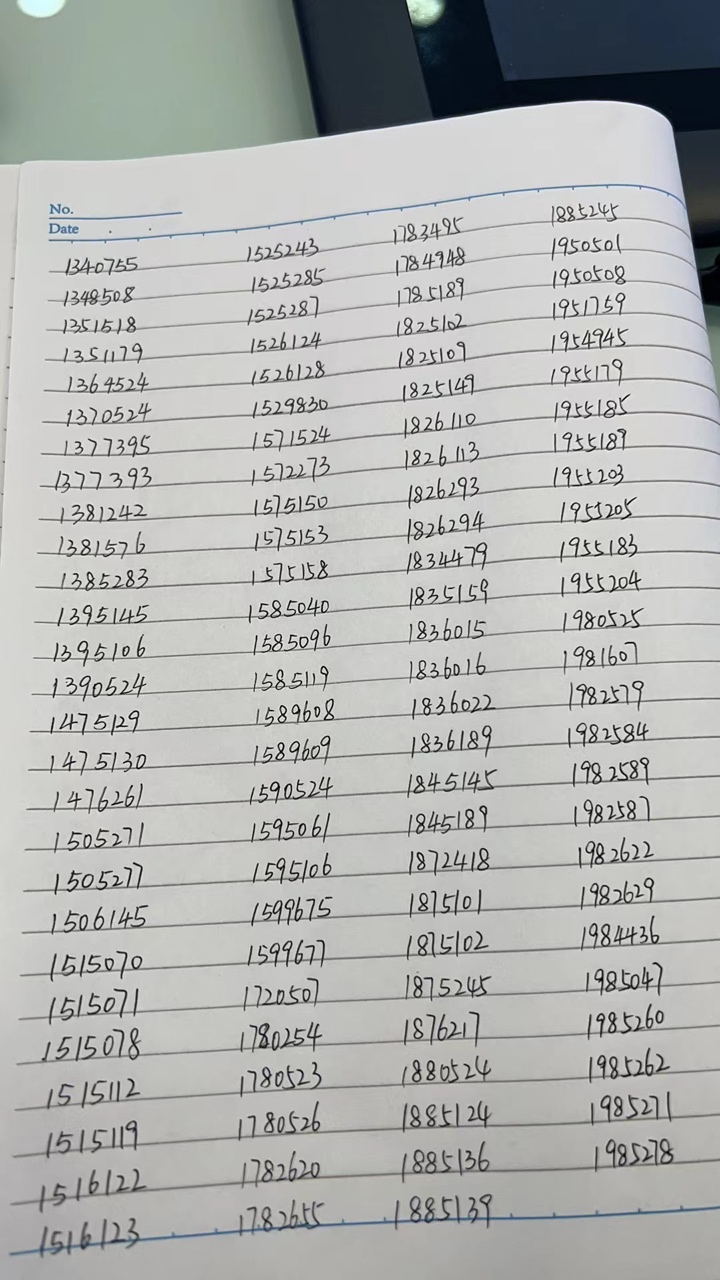 No.
Date
1340755 1525243 1783495 1885245
1348508 1525285 1784948 1950501
1351518 1525287 1785189 1950508
1351179 1526124 1825102 1951759
1364524 1526128 1825109 1954945
1370524 1529830 1825149 1955179
1377395 1571524 1826110 1955185
1377393 1572273 1826113 1955189
1381242 1575150 1826293 1955203
1381576 1575153 1826294 1955205
1385283 1575158 1834479 1955183
1395145 1585040 1835159 1955204
1395106 1585096 1836015 1980525
1390524 1585119 1836016 1981607
1475129 1589608 1836022 1982579
1475130 1589609 1836189 1982584
1476261 1590524 1845145 1982589
1505271 1595061 1845189 1982587
1505277 1595106 1872418 1982622
1506145 1599675 1875101 1982629
1515070 1599677 1875102 1984436
1515071 1720507 1875245 1985047
1515078 1780254 1876217 1985260
1515112 1780523 1880524 1985262
1515119 1780526 1885124 1985271
1516122 1782620 1885136 1985278
1516123 1782655 1885139